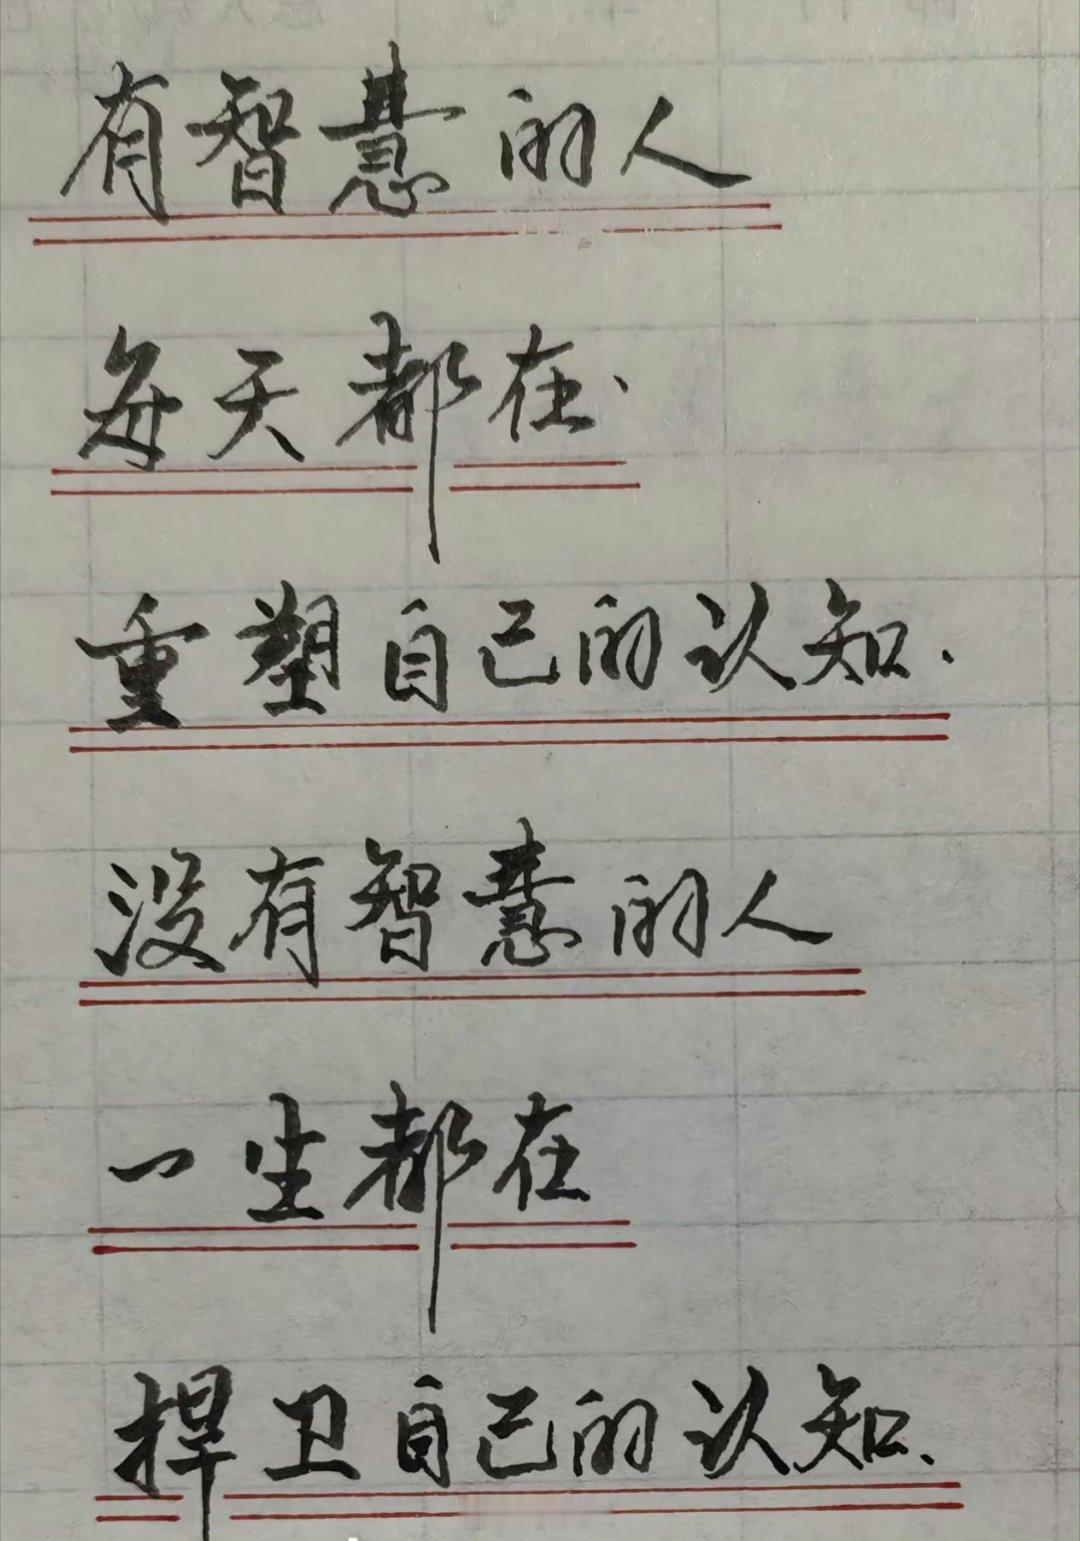 有智慧的人
每天都在
重塑自己的认知.
没有智慧的人
一生都在
捍卫自己的认知.